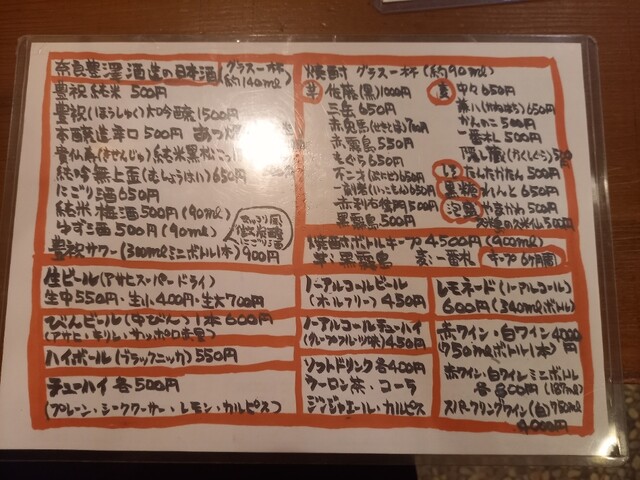 奈良豊澤酒造の日本酒(グラス一杯約140ml)
豊祝純米 500円
豊祝(ほうしゅく)大吟醸1500円
本醸造辛口 500円 あつ燗
貴仙寿(きせんじゅ)純米黒松
純吟無上盃(むじょうはい)650円
にごり酒650円
純米梅酒500円(90ml)
ゆず酒500円(90ml)
豊祝サワー(300mlミニボトル1本)900円
焼酎 グラス一杯(約90ml)
芋 佐藤(黒)1000円
三岳 650円
赤兎馬(せきとば)700円
赤霧島 550円
もぐら 650円
不二才(ぶにせ)650円
一刻者(いっこもん)650円
赤利右衛門500円
黒霧島 500円
麦 中々 650円
兼八(かねはち)650円
かんのこ 500円
一番札 500円
隠し蔵(かくしぐら)
しそ たんたかたん 500円
黒糖 れんと 650円
泡盛 やまかわ 500円
久米仙500円
焼酎ボトルキープ4500円(900ml)
芋:黒霧島 麦:一番札 キープ6ヶ月間
生ビール(アサヒスーパードライ)
生中550円・生小400円・生大700円
びんビール(中びん)1本600円
(アサヒ・キリン・サッポロ赤星)
ハイボール(ブラックニッカ)550円
チューハイ 各500円
(プレーン・シークワーサー・レモン・カルピス)
ノーアルコールビール
(オールフリー)450円
ノーアルコールチューハイ
(グレープフルーツ味)450円
ソフトドリンク 各400円
ウーロン茶・コーラ
ジンジャエール・カルピス
レモネード(ノーアルコール)
600円(340mlボトル)
赤ワイン・白ワイン4000円
750mlボトル(1本)
赤ワイン・白ワインミニボトル
各800円(187ml)
スパークリングワイン(白)750ml
4000円